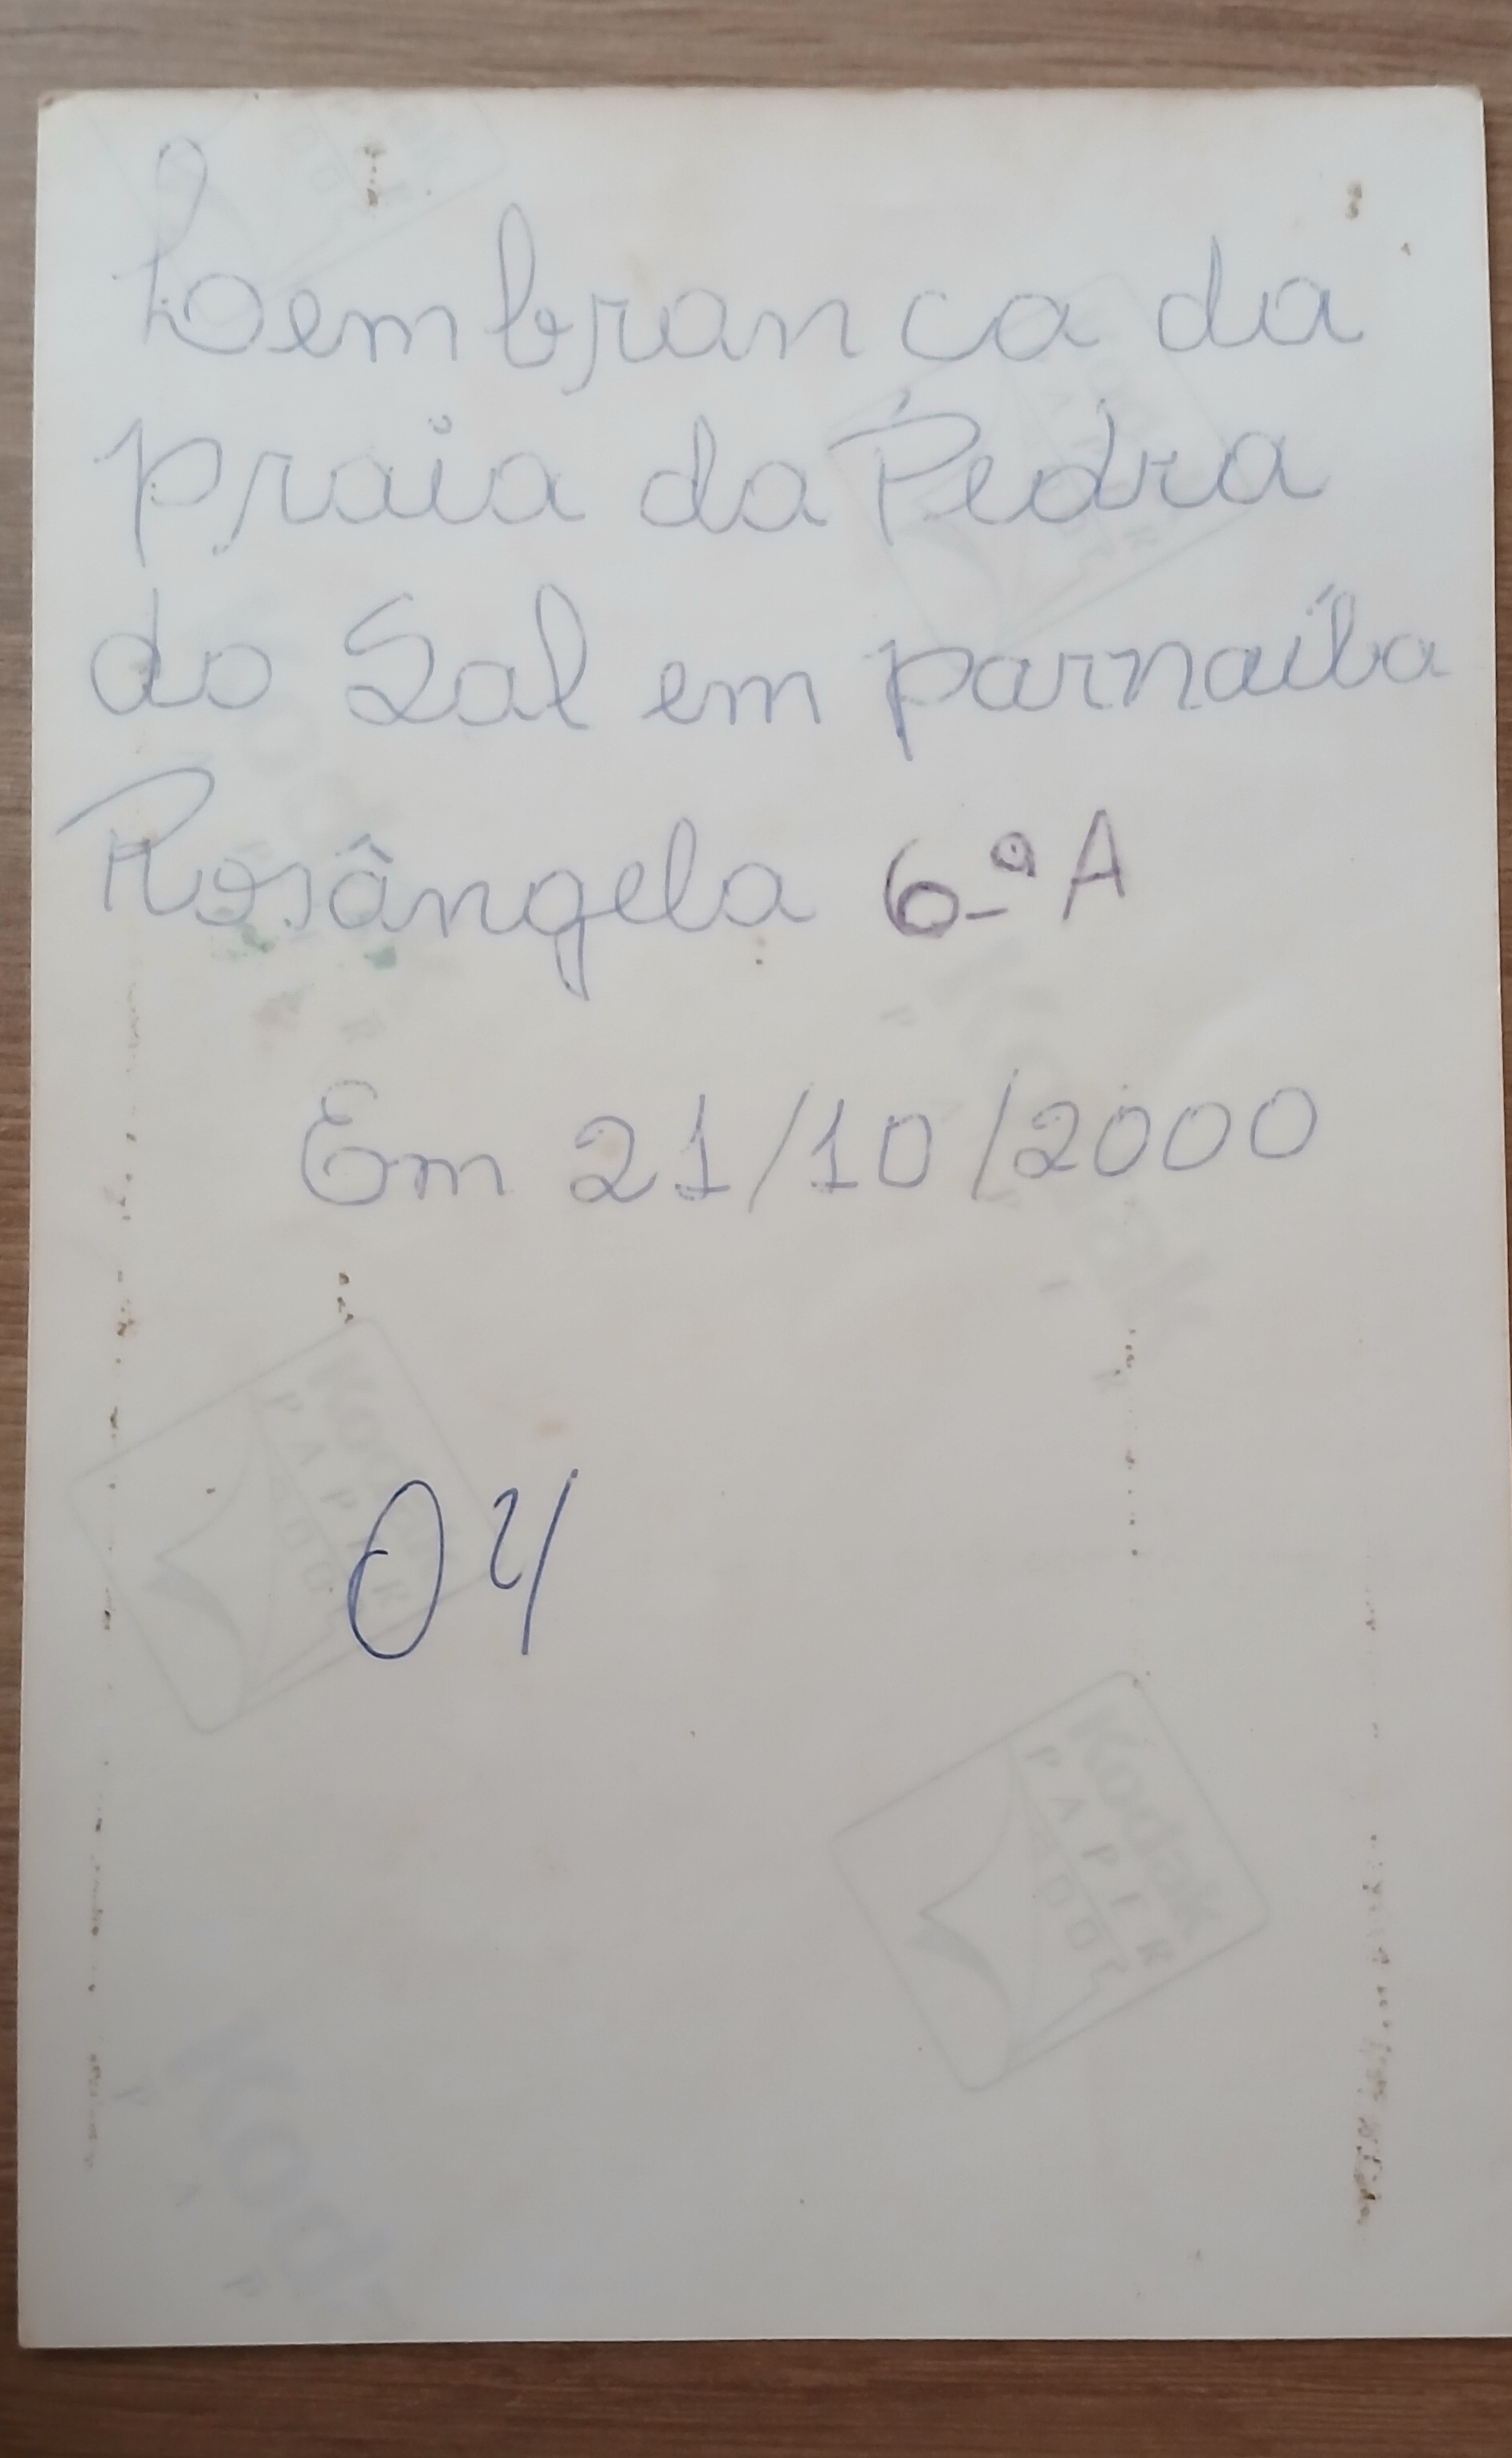 Lembranca da
praia da Pedra
do Sal em parnaíba
Rosângela 6ª A
Em 21/10/2000
04
Kodak
PAPER
Kodak
PAPER